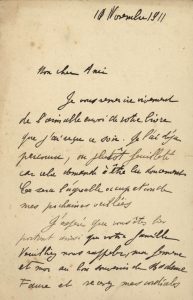 10 Novembre 1911
Mon cher Ami
Je vous remercie vivement
de l'aimable envoi de votre livre
que j'ai reçu ce soir. Je l'ai déjà
parcouru, ou plutôt feuilleté
car elle demande à être lu doucement
Ce sera l'agréable occupation de
mes prochaines veillées
J'espère que vous êtes bien
portant ainsi que votre famille
Veuillez nous rappeler, ma femme
et moi au bon souvenir de Madame
Faure et recevez mes cordiales